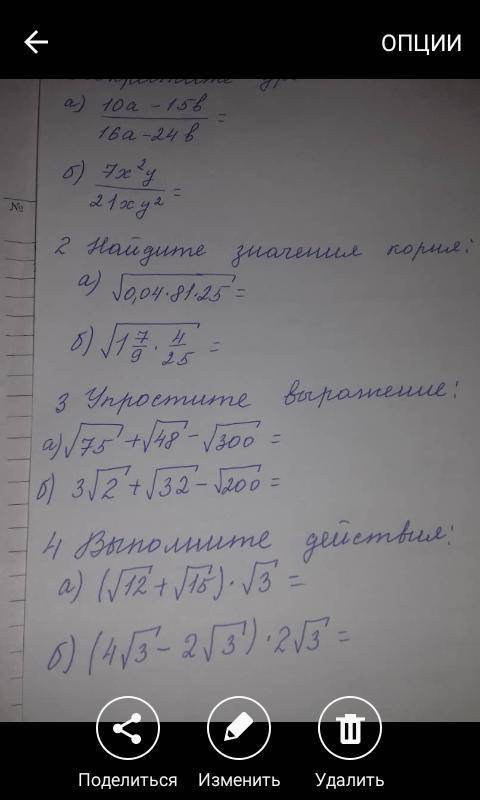 ОПЦИИ
а) 10а - 15в / 16а - 24в =
б) 7x²y / 21xy² =
№
2 Найдите значения корня:
а) √0,04 · 81 · 25 =
б) √1 7/9 · 4/25 =
3 Упростите выражение:
а) √75 + √48 - √300 =
б) 3√2 + √32 - √200 =
4 Выполните действия:
а) (√12 + √15) · √3 =
б) (4√3 - 2√3) · 2√3 =
Поделиться Изменить Удалить